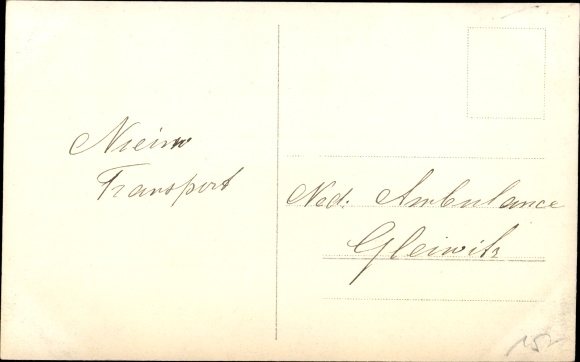 Nieiw
Transport
Ned. Ambulance
Gleiwitz
152